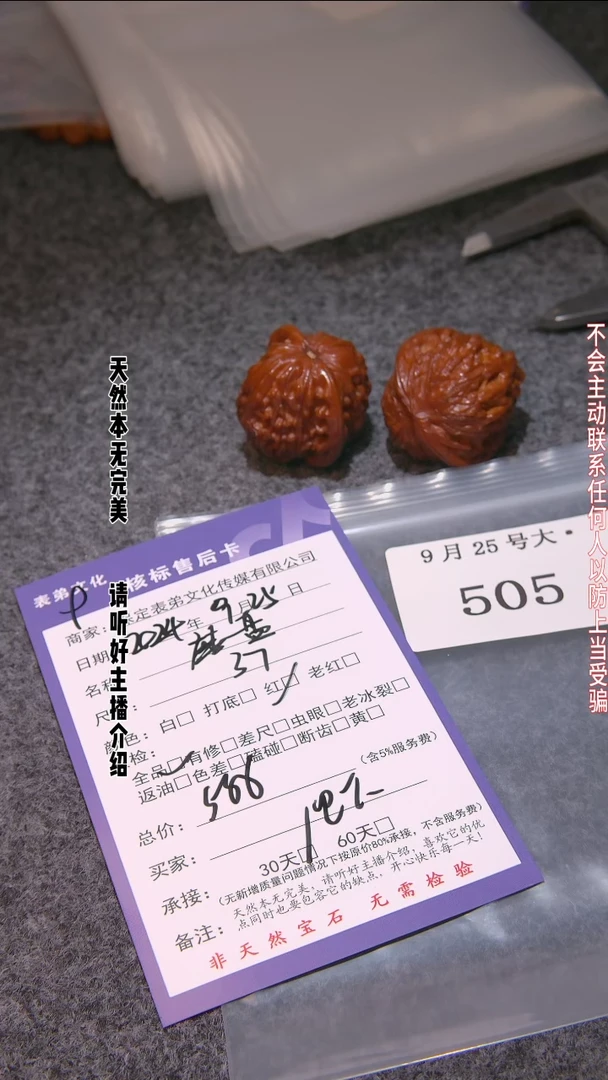 天然本无完美 请听好主播介绍
不会主动联系任何人以防上当受骗
9月25号大
505
表弟文化 核标售后卡
商家：保定表弟文化传媒有限公司
日期 2024年 9月 25日
名称
尺 37
颜色：白□ 打底□ 红□ 老红□
检：
全品□有修□差尺□虫眼□老冰裂□
返油□色差□磕碰□断齿□黄□
总价： 566 (含5%服务费)
买家：
承接： 30天□ 60天□
(无新增质量问题情况下按原价80%承接，不含服务费)
备注： 天然本无完美，请听好主播介绍，喜欢它的优
点同时也要包容它的缺点，开心快乐每一天！
非天然宝石 无需检验